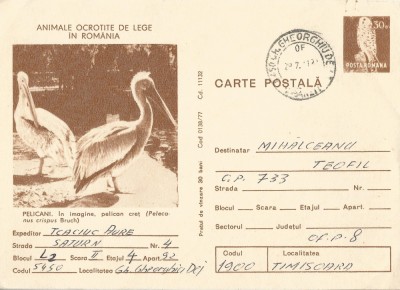 ANIMALE OCROTITE DE LEGE
IN ROMÂNIA
PELICANI. În imagine, pelican creț (Peleca-
nus crispus Bruch)
Expeditor TCACIUC AURE
Strada SATURN Nr. 4
Blocul L2 Scara II Etajul 4 Apart. 92
Codul 5450 Localitatea Gh. Gheorghiu Dej
Prețul de vînzare 90 bani
Cod 0138/77
Cd 11132
GHEORGHIU DE
OF
30 b
POSTA ROMANA
CARTE POȘTALĂ
Destinatar MIHĂLCEANU
TEOFIL
Strada G.P. 733 Nr.
Blocul Scara Etajul Apart.
Sectorul Județul
OF. P-8
Codul Localitatea
1900 TIMISOARA